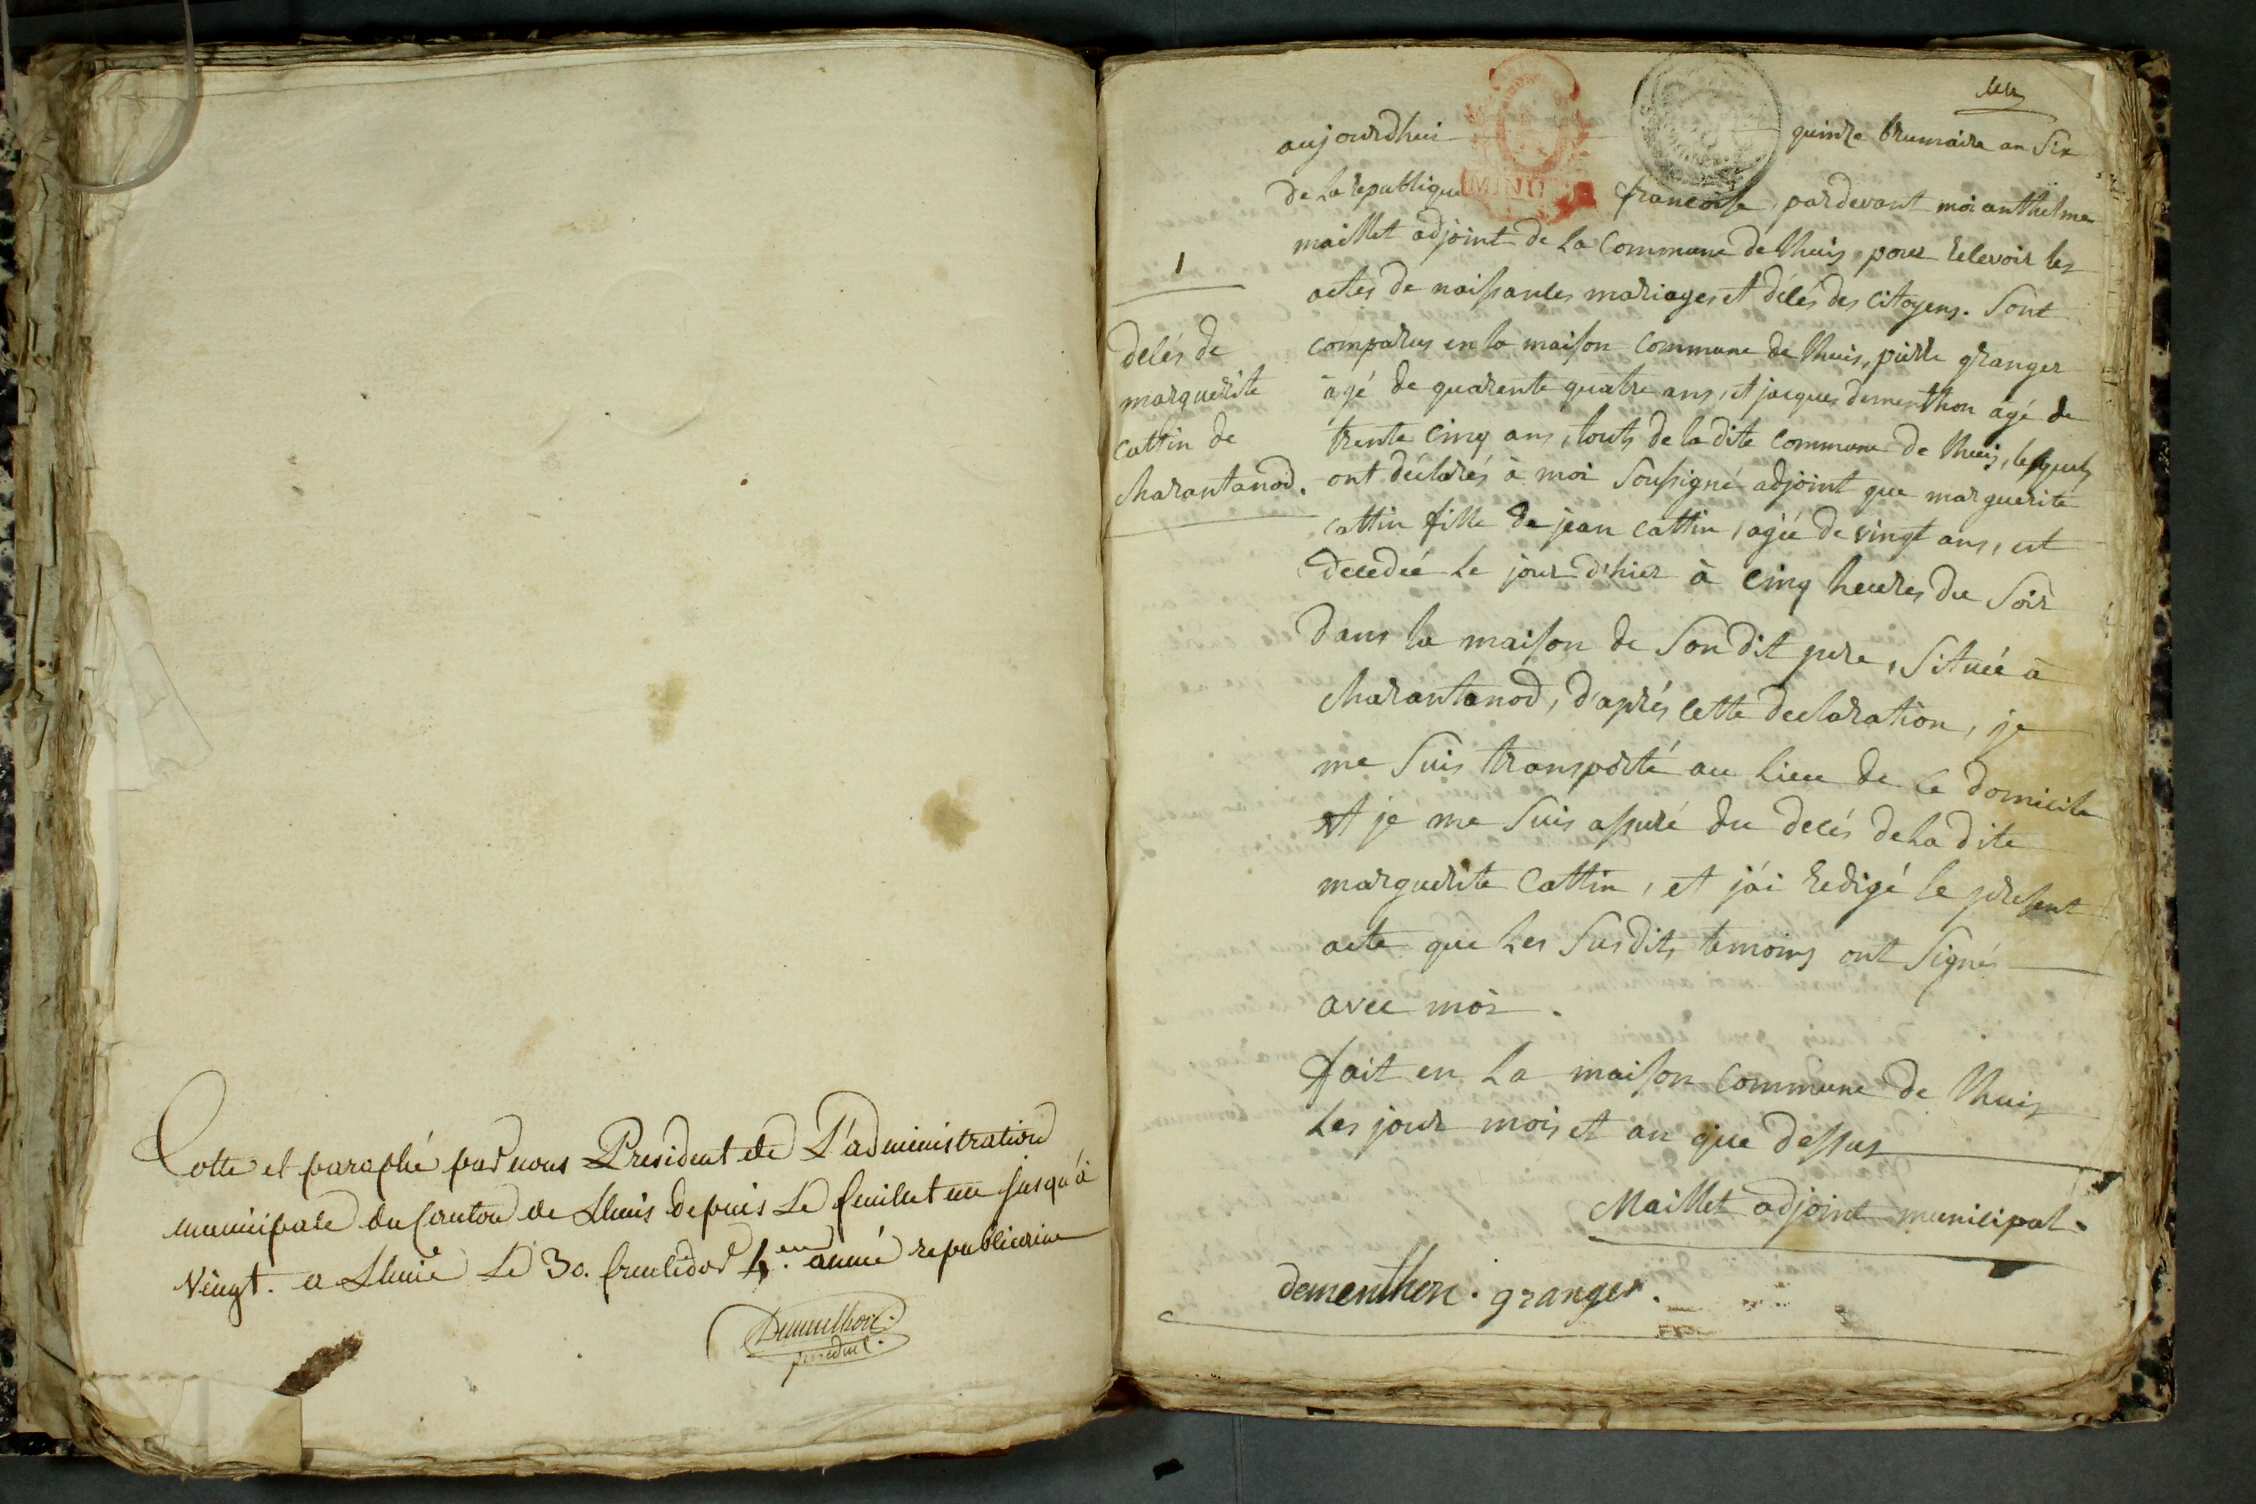 Cotté et paraphé par nous President de L'administration
municipale du Canton de Lhuis depuis Le feuillet un jusqu'à
Vingt. a Lhuis Le 30. fructidor année republicaine
Dementhon.
president.
un
aujourdhui quinze brumaire an Six
de la republique francoise, pardevant moi anthelme
maillet adjoint de la Commune de lhuis, pour recevoir les
actes de naissances mariages et décés des Citoyens. Sont
comparus en la maison commune de lhuis, pierre granger
agé de quarente quatre ans, et jacques dementhon agé de
trente cinq ans, touts de la dite commune de lhuis, lesquels
ont déclarés à moi Soussigné adjoint que marguerite
cattin fille de jean cattin, agée de vingt ans, est
decedée le jour d'hier à cinq heures du Soir
dans la maison de Son dit pere, Située à
charantanod, d'aprés cette declaration, je
me Suis transporté au lieu de ce domicile
et je me Suis assuré du decés de la dite
marguerite Cattin, et j'ai redigé le present
acte que les Susdits temoins ont Signés
avec moi.
fait en la maison Commune de lhuis
les jour mois et an que dessus
Maillet adjoint municipal.
dementhon. granger.
1
decés de
marguerite
cattin de
charantanod.
MINU